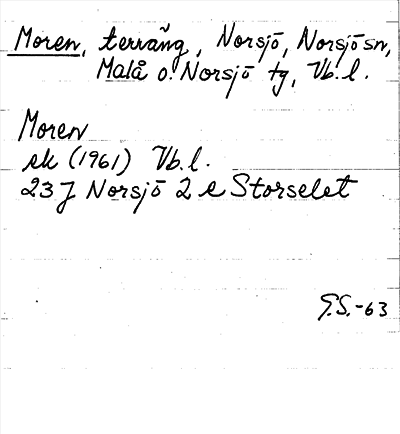 Moren, terräng, Norsjö, Norsjö sn,
Malå o. Norsjö tg, Vb.l.
Moren
ek (1961) Vb.l.
23 J Norsjö 2 e Storselet
G.S.-63